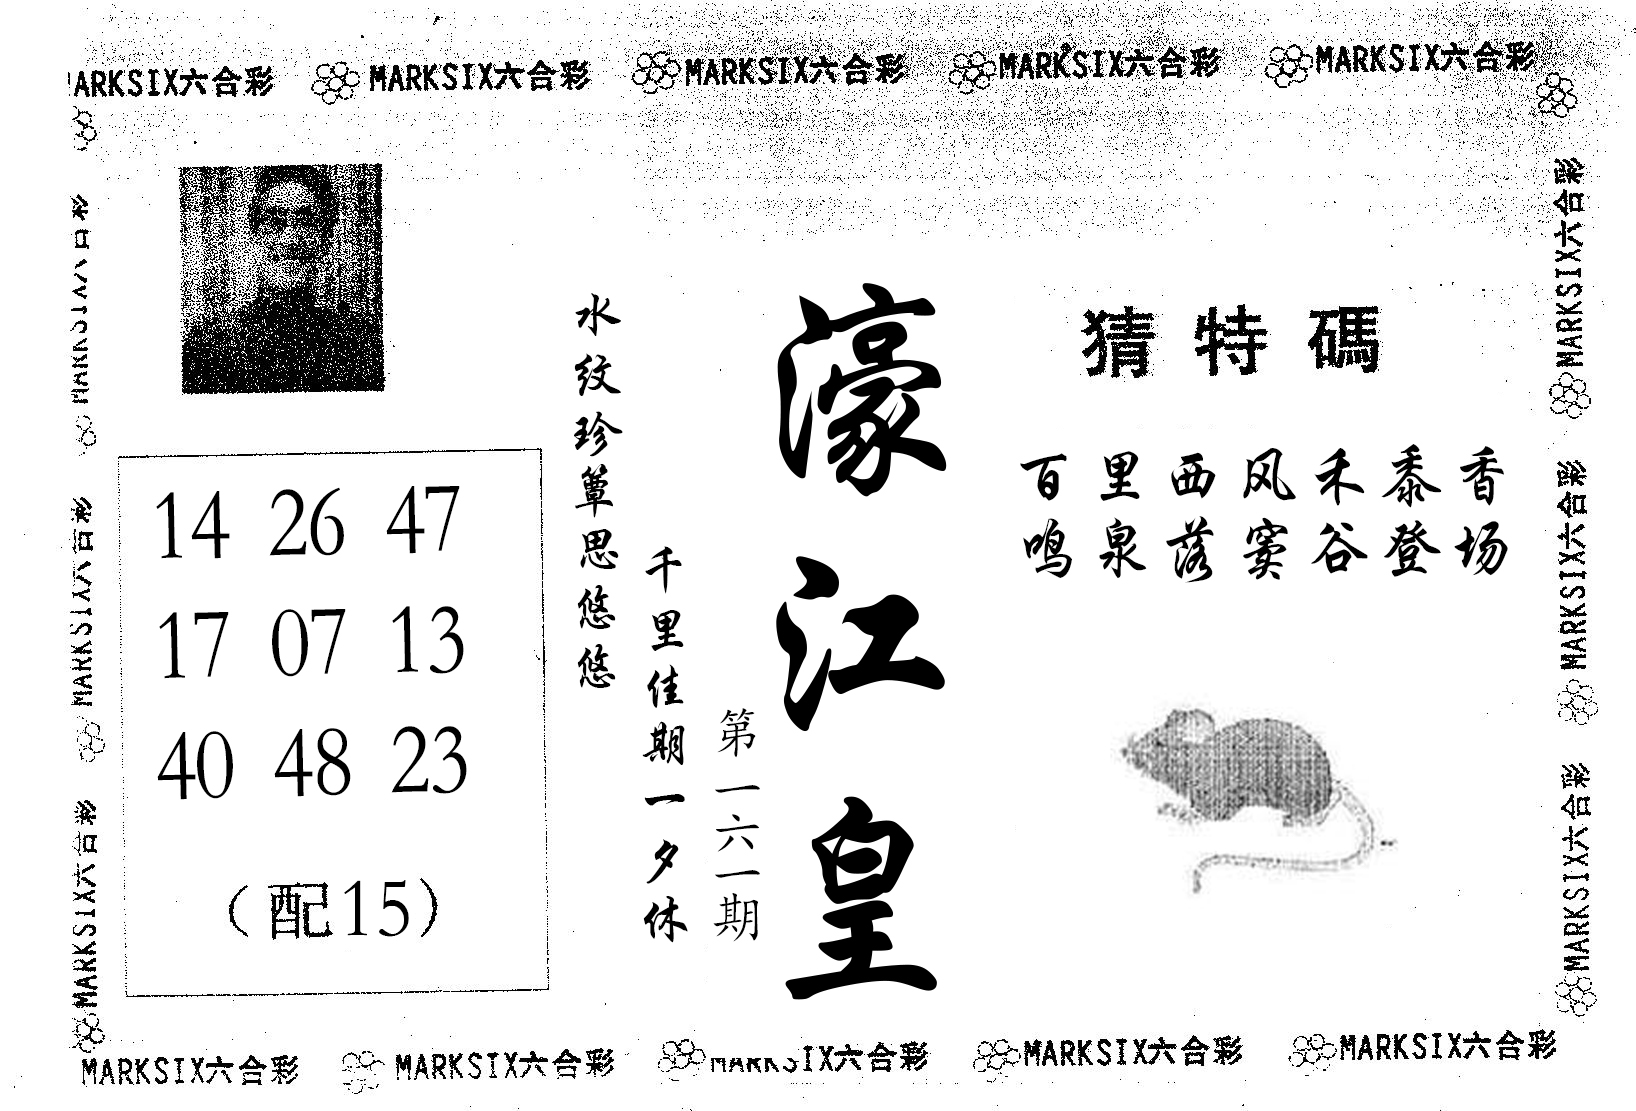 MARKSIX六合彩 MARKSIX六合彩 MARKSIX六合彩 MARKSIX六合彩 MARKSIX六合彩
猜特碼
百里西风禾黍香
鸣泉落窦谷登场
濠江皇
第一六一期
水纹珍簟思悠悠
千里佳期一夕休
14 26 47
17 07 13
40 48 23
（配15）
MARKSIX六合彩
MARKSIX六合彩
MARKSIX六合彩
MARKSIX六合彩
MARKSIX六合彩
MARKSIX六合彩
MARKSIX六合彩 MARKSIX六合彩 MARKSIX六合彩 MARKSIX六合彩 MARKSIX六合彩